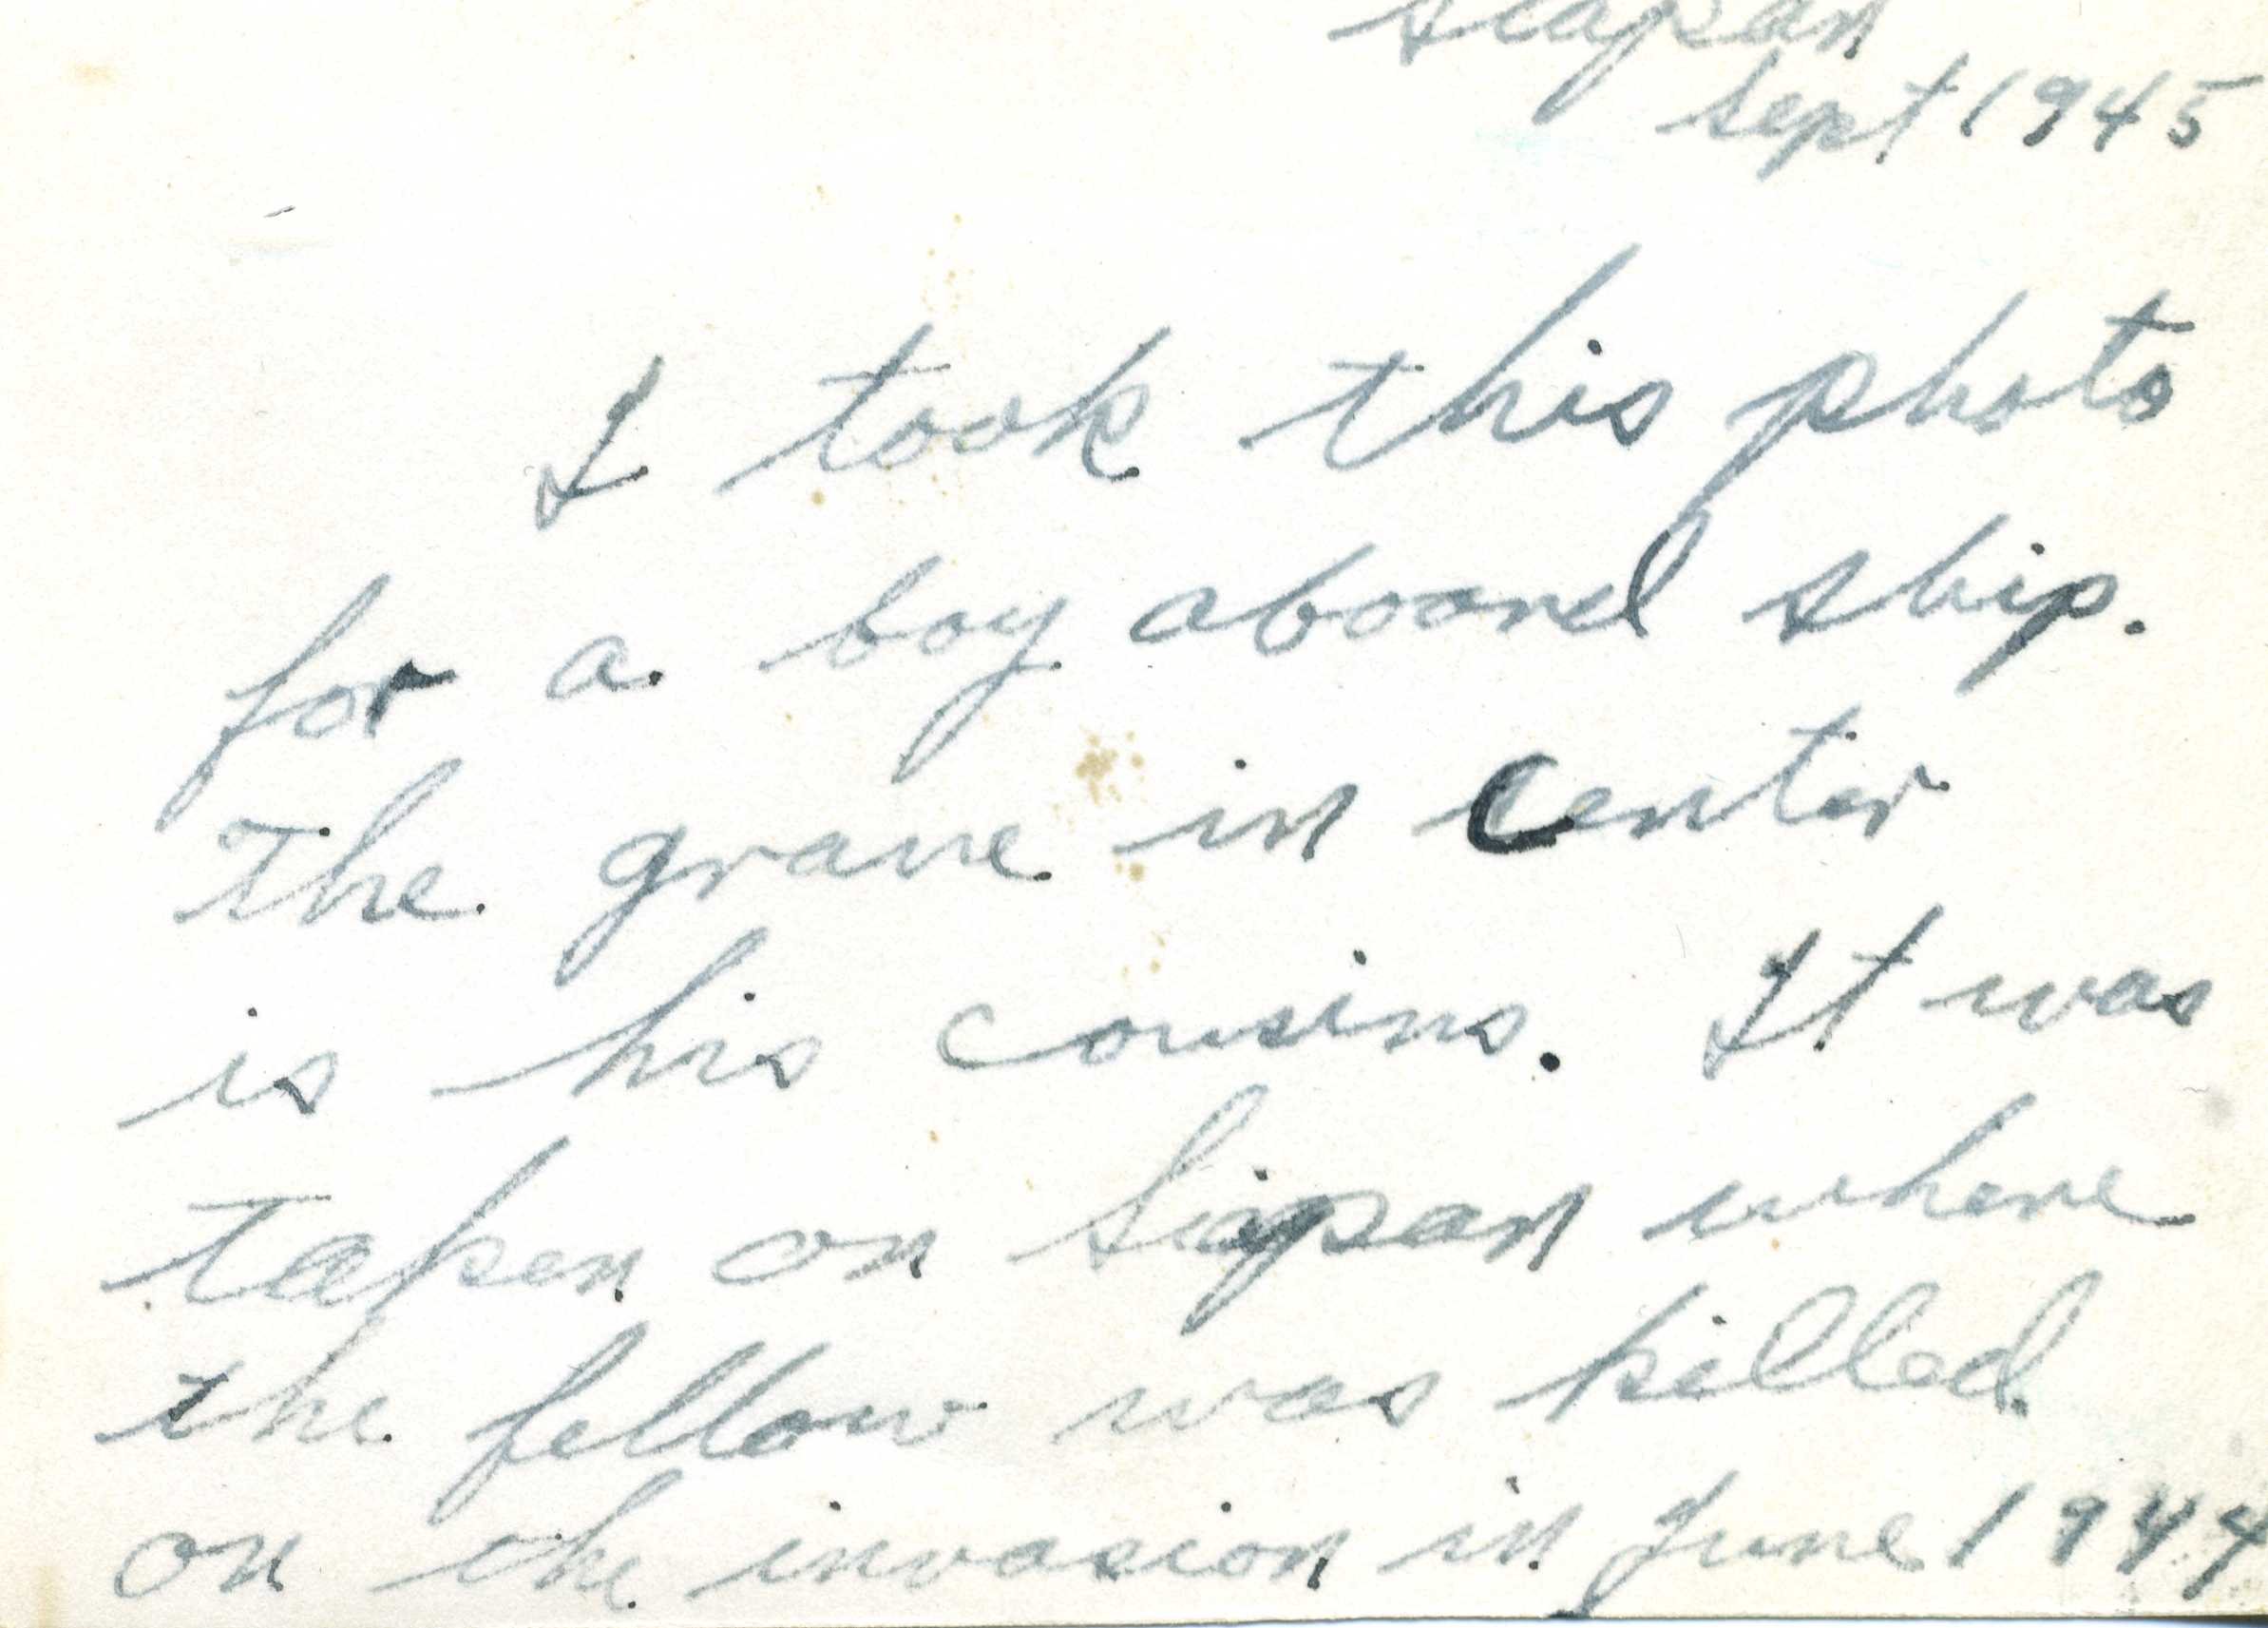 Siapan
Sept 1945
I took this photo
for a boy aboard ship.
The grave in center
is his cousins. It was
taken on Siapan where
the fellow was killed
on the invasion in June 1944